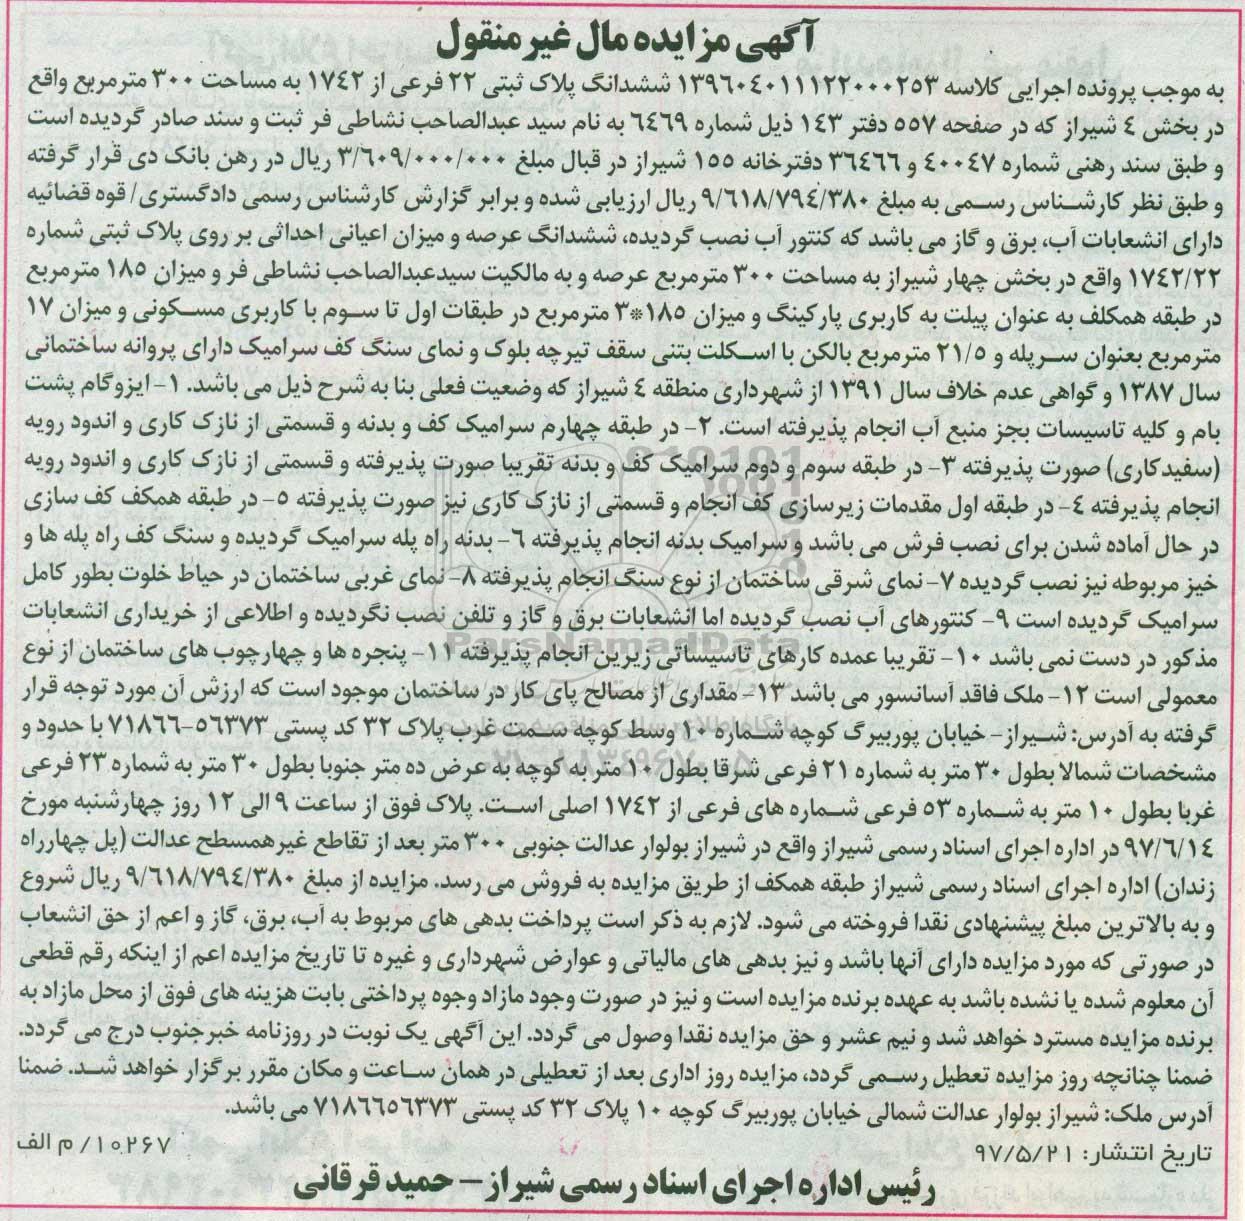 آگهی مزایده مال غیر منقول
به موجب پرونده اجرایی کلاسه ۱۳۹۶۰۴۰۱۱۱۲۲۰۰۰۲۵۳ ششدانگ پلاک ثبتی ۲۲ فرعی از ۱۷۴۲ به مساحت ۳۰۰ مترمربع واقع
در بخش ٤ شیراز که در صفحه ۵۵۷ دفتر ۱٤۳ ذیل شماره ٦٤٦٩ به نام سید عبدالصاحب نشاطی فر ثبت و سند صادر گردیده است
و طبق سند رهنی شماره ٤۰۰٤۷ و ۳٦٤٦٦ دفترخانه ۱۵۵ شیراز در قبال مبلغ ۳/٦۰۹/۰۰۰/۰۰۰ ریال در رهن بانک دی قرار گرفته
و طبق نظر کارشناس رسمی به مبلغ ۹/٦۱۸/۷۹٤/۳۸۰ ریال ارزیابی شده و برابر گزارش کارشناس رسمی دادگستری/ قوه قضائیه
دارای انشعابات آب، برق و گاز می باشد که کنتور آب نصب گردیده، ششدانگ عرصه و میزان اعیانی احداثی بر روی پلاک ثبتی شماره
۱۷٤۲/۲۲ واقع در بخش چهار شیراز به مساحت ۳۰۰ مترمربع عرصه و به مالکیت سیدعبدالصاحب نشاطی فر و میزان ۱۸۵ مترمربع
در طبقه همکلف به عنوان پیلت به کاربری پارکینگ و میزان ۱۸۵*۳ مترمربع در طبقات اول تا سوم با کاربری مسکونی و میزان ۱۷
مترمربع بعنوان سرپله و ۲۱/۵ مترمربع بالکن با اسکلت بتنی سقف تیرچه بلوک و نمای سنگ کف سرامیک دارای پروانه ساختمانی
سال ۱۳۸۷ و گواهی عدم خلاف سال ۱۳۹۱ از شهرداری منطقه ٤ شیراز که وضعیت فعلی بنا به شرح ذیل می باشد. ۱- ایزوگام پشت
بام و کلیه تاسیسات بجز منبع آب انجام پذیرفته است. ۲- در طبقه چهارم سرامیک کف و بدنه و قسمتی از نازک کاری و اندود رویه
(سفیدکاری) صورت پذیرفته ۳- در طبقه سوم و دوم سرامیک کف و بدنه تقریبا صورت پذیرفته و قسمتی از نازک کاری و اندود رویه
انجام پذیرفته ٤- در طبقه اول مقدمات زیرسازی کف انجام و قسمتی از نازک کاری نیز صورت پذیرفته ۵- در طبقه همکف کف سازی
در حال آماده شدن برای نصب فرش می باشد و سرامیک بدنه انجام پذیرفته ٦- بدنه راه پله سرامیک گردیده و سنگ کف راه پله ها و
خیز مربوطه نیز نصب گردیده ۷- نمای شرقی ساختمان از نوع سنگ انجام پذیرفته ۸- نمای غربی ساختمان در حیاط خلوت بطور کامل
سرامیک گردیده است ۹- کنتورهای آب نصب گردیده اما انشعابات برق و گاز و تلفن نصب نگردیده و اطلاعی از خریداری انشعابات
مذکور در دست نمی باشد ۱۰- تقریبا عمده کارهای تاسیساتی زیرین انجام پذیرفته ۱۱- پنجره ها و چهارچوب های ساختمان از نوع
معمولی است ۱۲- ملک فاقد آسانسور می باشد ۱۳- مقداری از مصالح پای کار در ساختمان موجود است که ارزش آن مورد توجه قرار
گرفته به آدرس: شیراز- خیابان پوربیرگ کوچه شماره ۱۰ وسط کوچه سمت غرب پلاک ۳۲ کد پستی ۵٦۳۷۳-۷۱۸٦٦ با حدود و
مشخصات شمالا بطول ۳۰ متر به شماره ۲۱ فرعی شرقا بطول ۱۰ متر به کوچه به عرض ده متر جنوبا بطول ۳۰ متر به شماره ۲۳ فرعی
غربا بطول ۱۰ متر به شماره ۵۳ فرعی شماره های فرعی از ۱۷٤۲ اصلی است. پلاک فوق از ساعت ۹ الی ۱۲ روز چهارشنبه مورخ
۹۷/٦/۱٤ در اداره اجرای اسناد رسمی شیراز واقع در شیراز بولوار عدالت جنوبی ۳۰۰ متر بعد از تقاطع غیرهمسطح عدالت (پل چهارراه
زندان) اداره اجرای اسناد رسمی شیراز طبقه همکف از طریق مزایده به فروش می رسد. مزایده از مبلغ ۹/٦۱۸/۷۹٤/۳۸۰ ریال شروع
و به بالاترین مبلغ پیشنهادی نقدا فروخته می شود. لازم به ذکر است پرداخت بدهی های مربوط به آب، برق، گاز و اعم از حق انشعاب
در صورتی که مورد مزایده دارای آنها باشد و نیز بدهی های مالیاتی و عوارض شهرداری و غیره تا تاریخ مزایده اعم از اینکه رقم قطعی
آن معلوم شده یا نشده باشد به عهده برنده مزایده است و نیز در صورت وجود مازاد وجوه پرداختی بابت هزینه های فوق از محل مازاد به
برنده مزایده مسترد خواهد شد و نیم عشر و حق مزایده نقدا وصول می گردد. این آگهی یک نوبت در روزنامه خبرجنوب درج می گردد.
ضمنا چنانچه روز مزایده تعطیل رسمی گردد، مزایده روز اداری بعد از تعطیلی در همان ساعت و مکان مقرر برگزار خواهد شد. ضمنا
آدرس ملک: شیراز بولوار عدالت شمالی خیابان پوربیرگ کوچه ۱۰ پلاک ۳۲ کد پستی ۷۱۸٦٦۵٦۳۷۳ می باشد.
تاریخ انتشار: ۹۷/۵/۲۱
۱۰۲۶۷/ م الف
رئیس اداره اجرای اسناد رسمی شیراز – حمید قرقانی
ParsNamadData